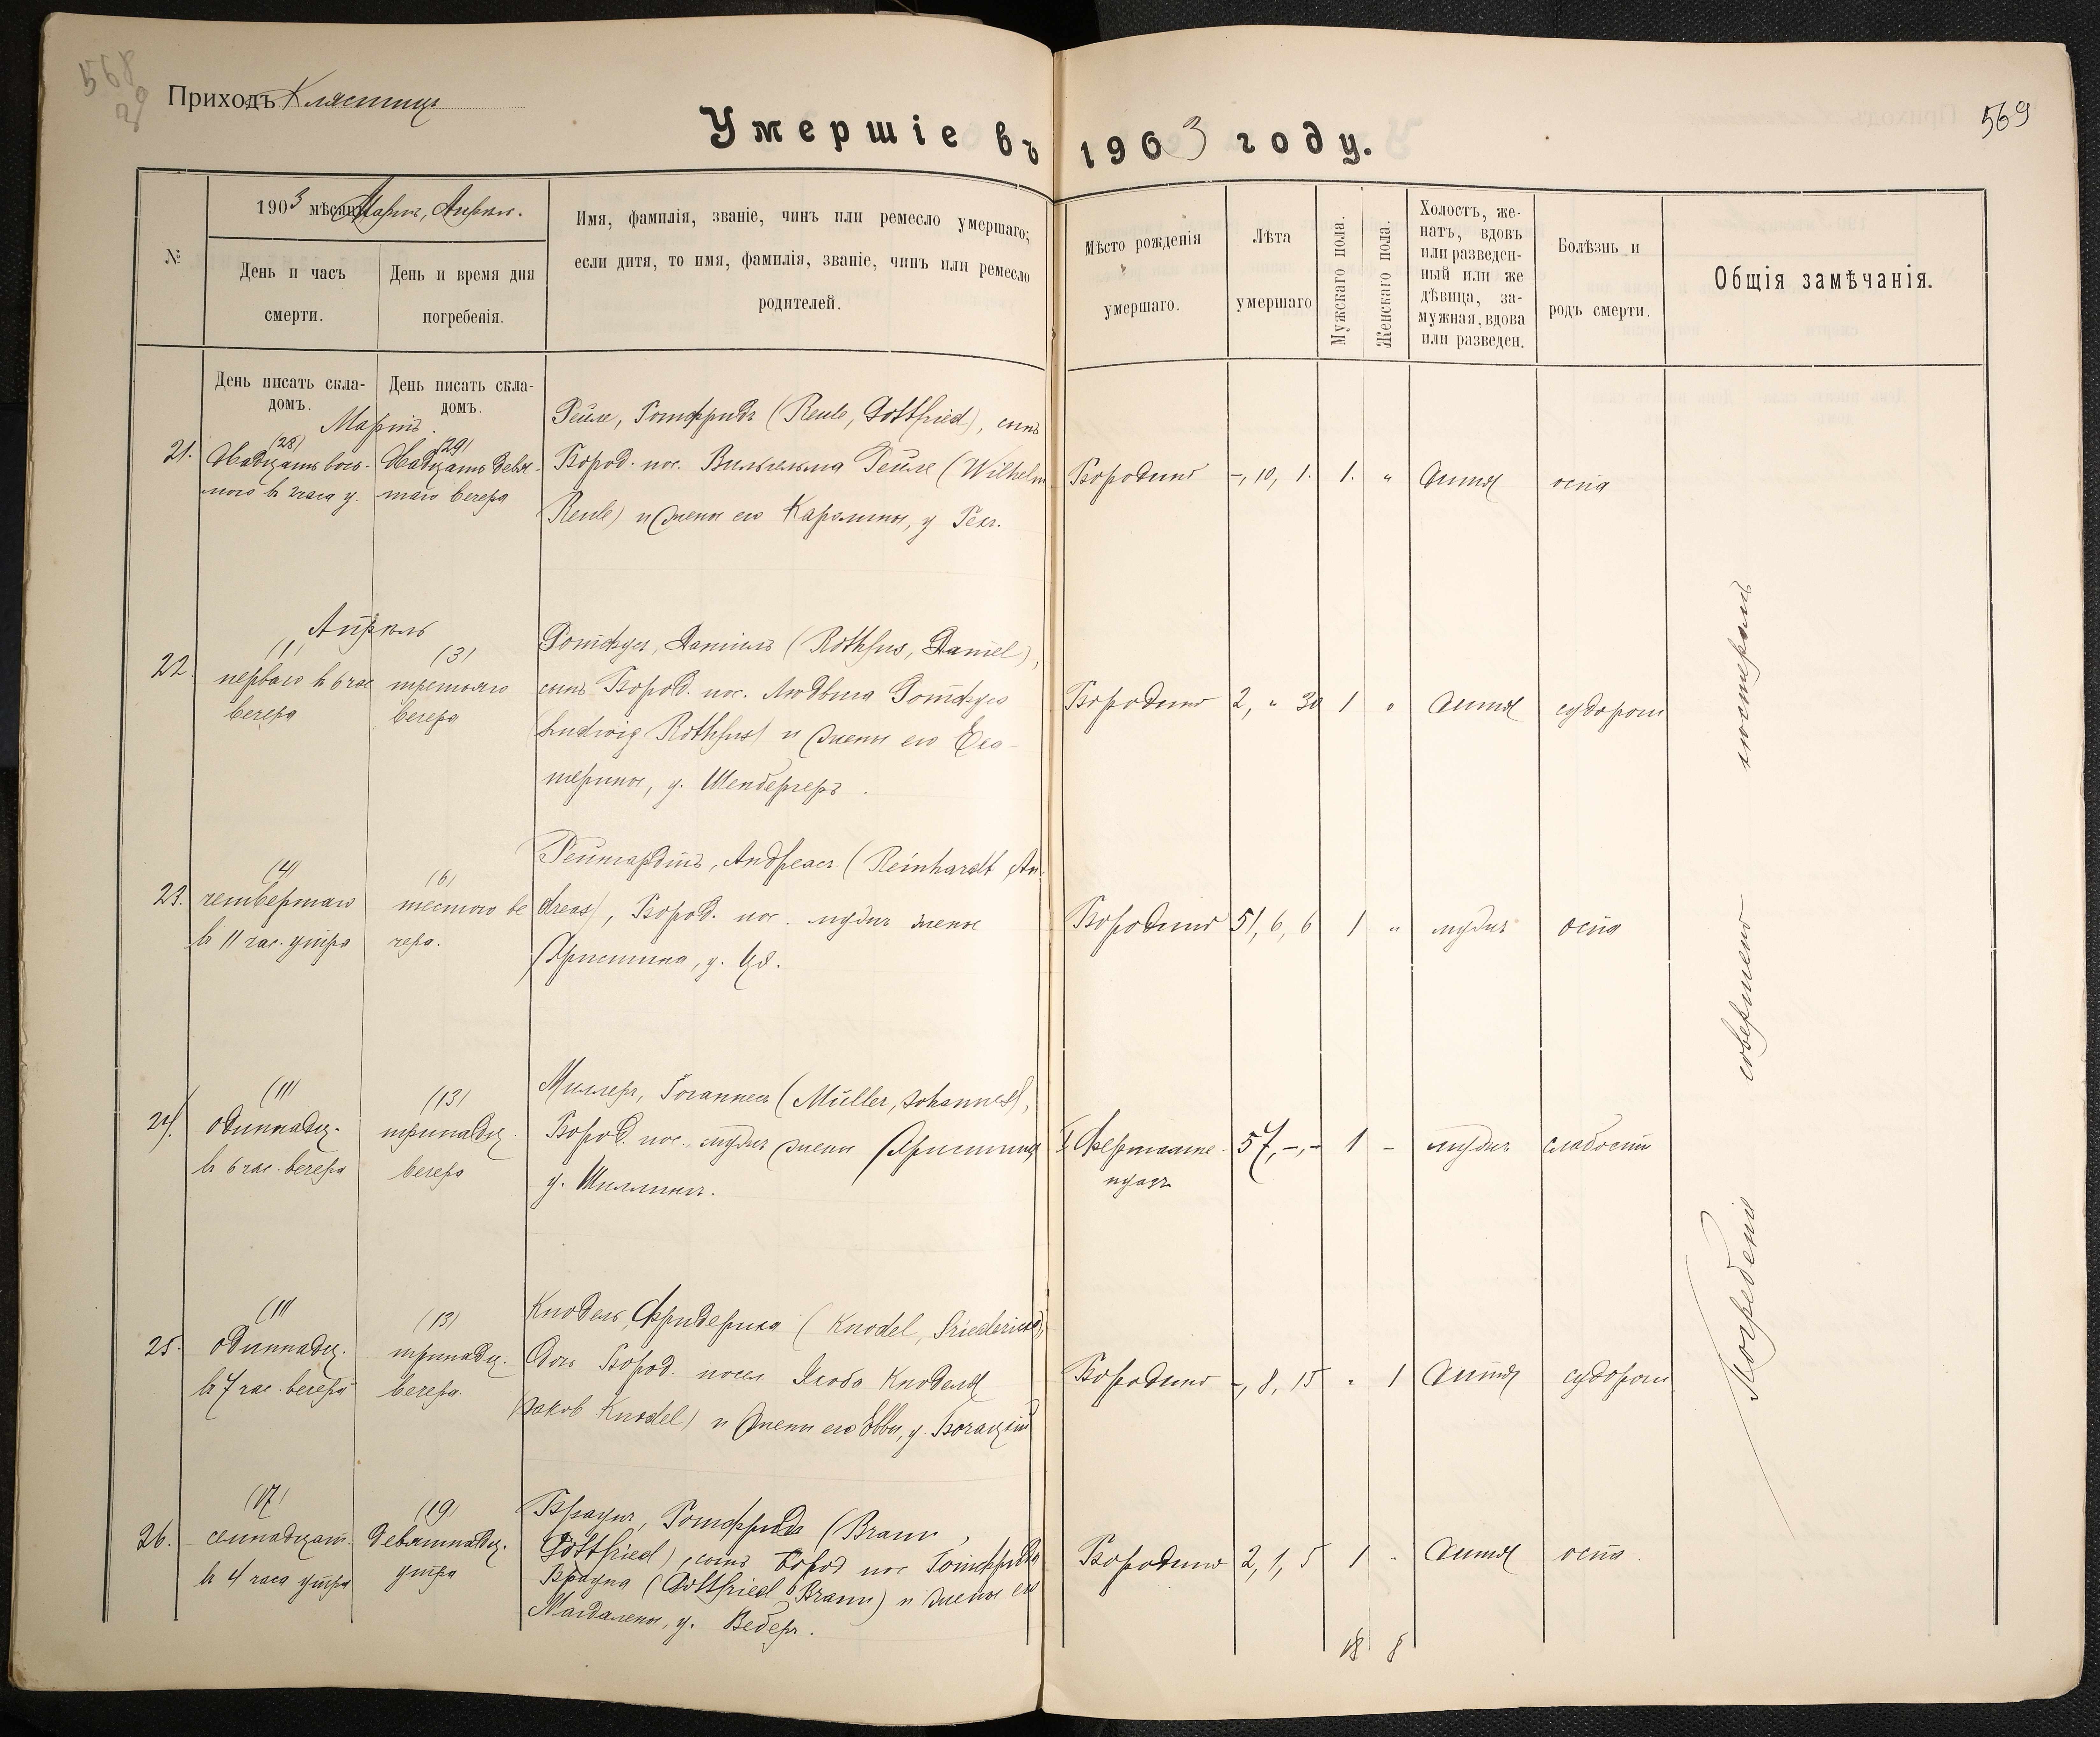 568
29
Приходъ Клястицъ
569
Умершіе въ 1903 году.
№
1903 мѣсяцъ Мартъ, Апрѣль.
День и часъ
смерти.
День и время дня
погребенія.
Имя, фамилія, званіе, чинъ или ремесло умершаго;
если дитя, то имя, фамилія, званіе, чинъ или ремесло
родителей.
Мѣсто рожденія
умершаго.
Лѣта
умершаго
Мужскаго пола.
Женскаго пола.
Холостъ, же-
натъ, вдовъ
или разведен-
ный или же
дѣвица, за-
мужная, вдова
или разведен.
Болѣзнь и
родъ смерти.
Общія замѣчанія.
День писать скла-
домъ.
День писать скла-
домъ.
Мартъ.
21.
(28)
двадцать вось-
мого в 2 часа у.
(29)
двадцать девя-
таго вечера
Рейле, Готфридъ (Reule, Gottfried), сынъ
Бород. пос. Вильгельма Рейле (Wilhelm
Reule) и жены его Каролины, у
Бородино
-, 10, 1.
1.
"
дитя
оспа
Апрѣль
22.
(1)
перваго в 6 час
вечера
(3)
третьяго
вечера
Ротфусъ, Даніилъ (Rothfus, Daniel),
сынъ Бород. пос. Людвига Ротфуса
(Ludwig Rothfus) и жены его Ека-
терины, у. Шенбергеръ.
Бородино
2, " 30
1
"
дитя
судороги
23.
(4)
четвертаго
в 11 час. утра
(6)
шестого ве
чера.
Рейнгардтъ, Андреасъ (Reinhardt, An-
dreas), Бород. пос. мужъ жены
Христина, у.
Бородино
51, 6, 6
1
"
мужъ
оспа
24.
(11)
одиннадц.
в 6 час. вечера
(13)
тринадц.
вечера
Миллеръ, Іоганнесъ (Müller, Johannes),
Бород. пос. мужъ жены Христины
у. Шиллингъ.
I Фершампе-
нуазъ
57, -, -
1
-
мужъ
слабость
25.
(11)
одиннадц.
в 7 час. вечера
(13)
тринадц.
вечера.
Кнодель, Фридерика (Knodel, Friederike),
дочь Бород. посел. Якоба Кноделя
(Jakob Knodel) и жены его Эвы, у.
Бородино
-, 8, 15
"
1
дитя
судороги
26.
(17)
семнадцат.
в 4 часа утра
(19)
девятнадц.
утра
Браунъ, Готфридъ (Braun,
Gottfried), сынъ Бород пос Готфрида
Брауна (Gottfried Braun) и жены его
Магдалены, у. Веберъ.
Бородино
2, 1, 5
1
"
дитя
оспа.
18 8
Погребенія совершено кистеромъ